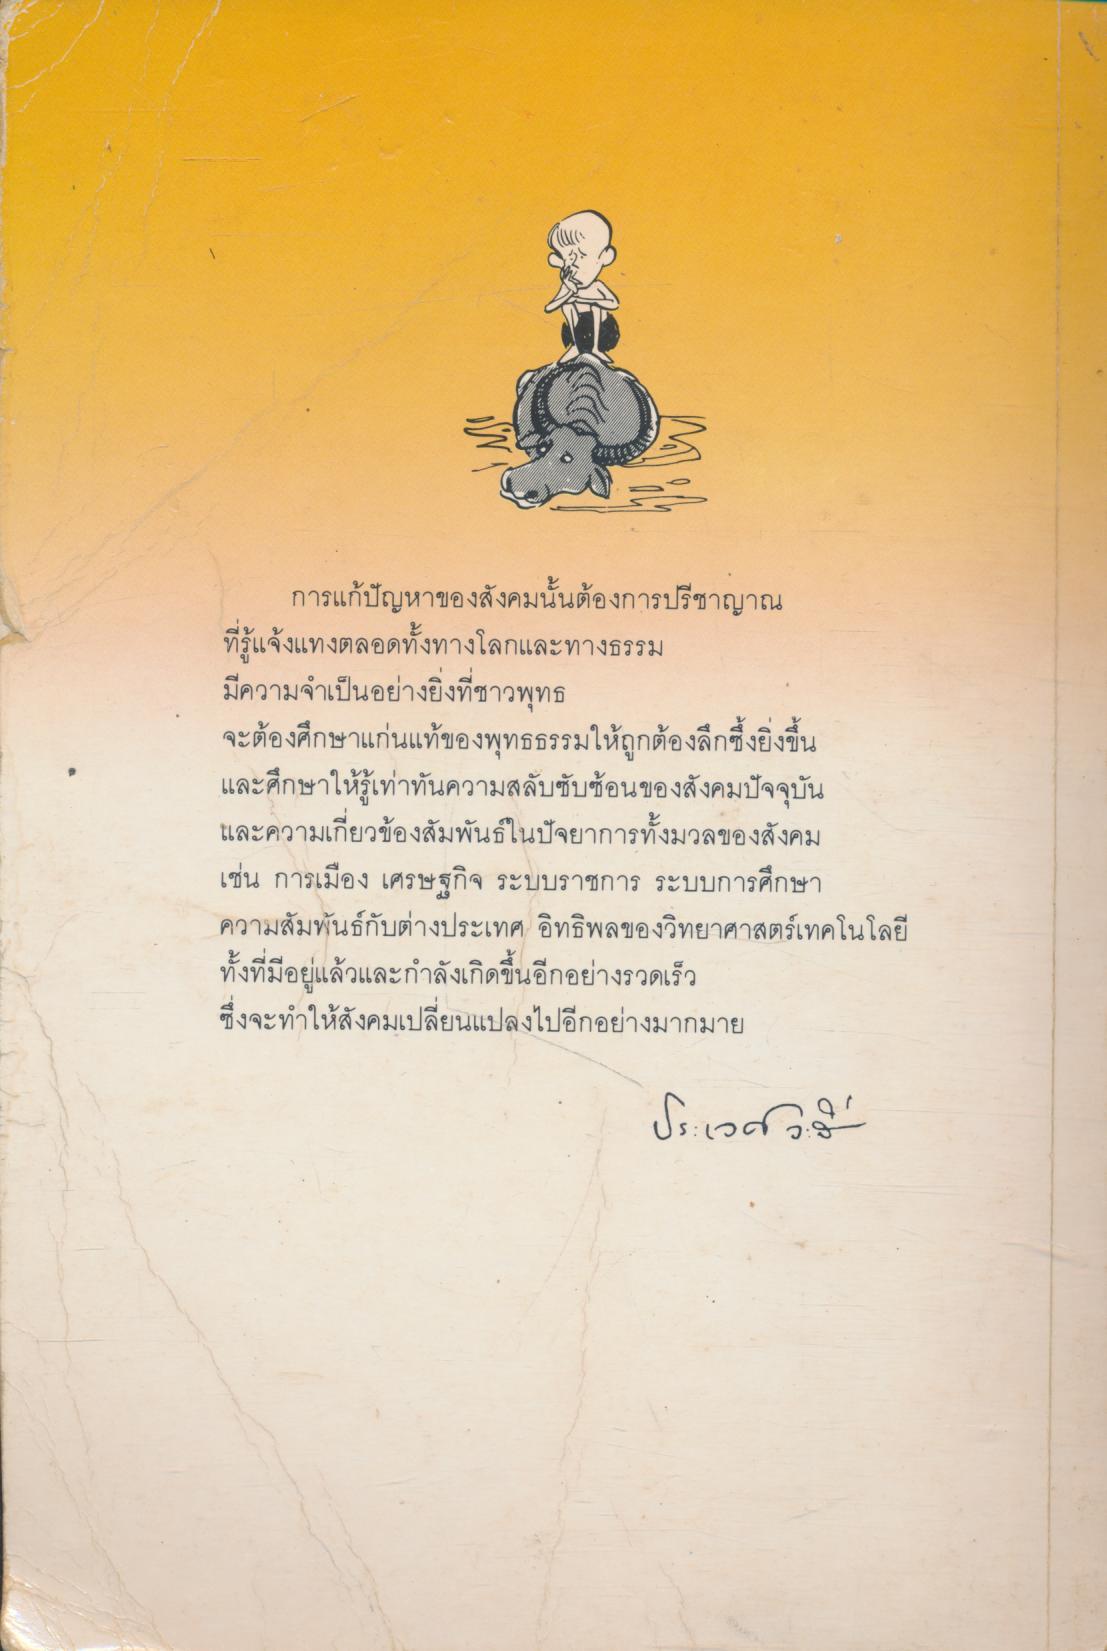 การแก้ปัญหาของสังคมนั้นต้องการปรีชาญาณ
ที่รู้แจ้งแทงตลอดทั้งทางโลกและทางธรรม
มีความจำเป็นอย่างยิ่งที่ชาวพุทธ
จะต้องศึกษาแก่นแท้ของพุทธธรรมให้ถูกต้องลึกซึ้งยิ่งขึ้น
และศึกษาให้รู้เท่าทันความสลับซับซ้อนของสังคมปัจจุบัน
และความเกี่ยวข้องสัมพันธ์ในปัจจยาการทั้งมวลของสังคม
เช่น การเมือง เศรษฐกิจ ระบบราชการ ระบบการศึกษา
ความสัมพันธ์กับต่างประเทศ อิทธิพลของวิทยาศาสตร์เทคโนโลยี
ทั้งที่มีอยู่แล้วและกำลังเกิดขึ้นอีกอย่างรวดเร็ว
ซึ่งจะทำให้สังคมเปลี่ยนแปลงไปอีกอย่างมากมาย
ประเวศ วะสี